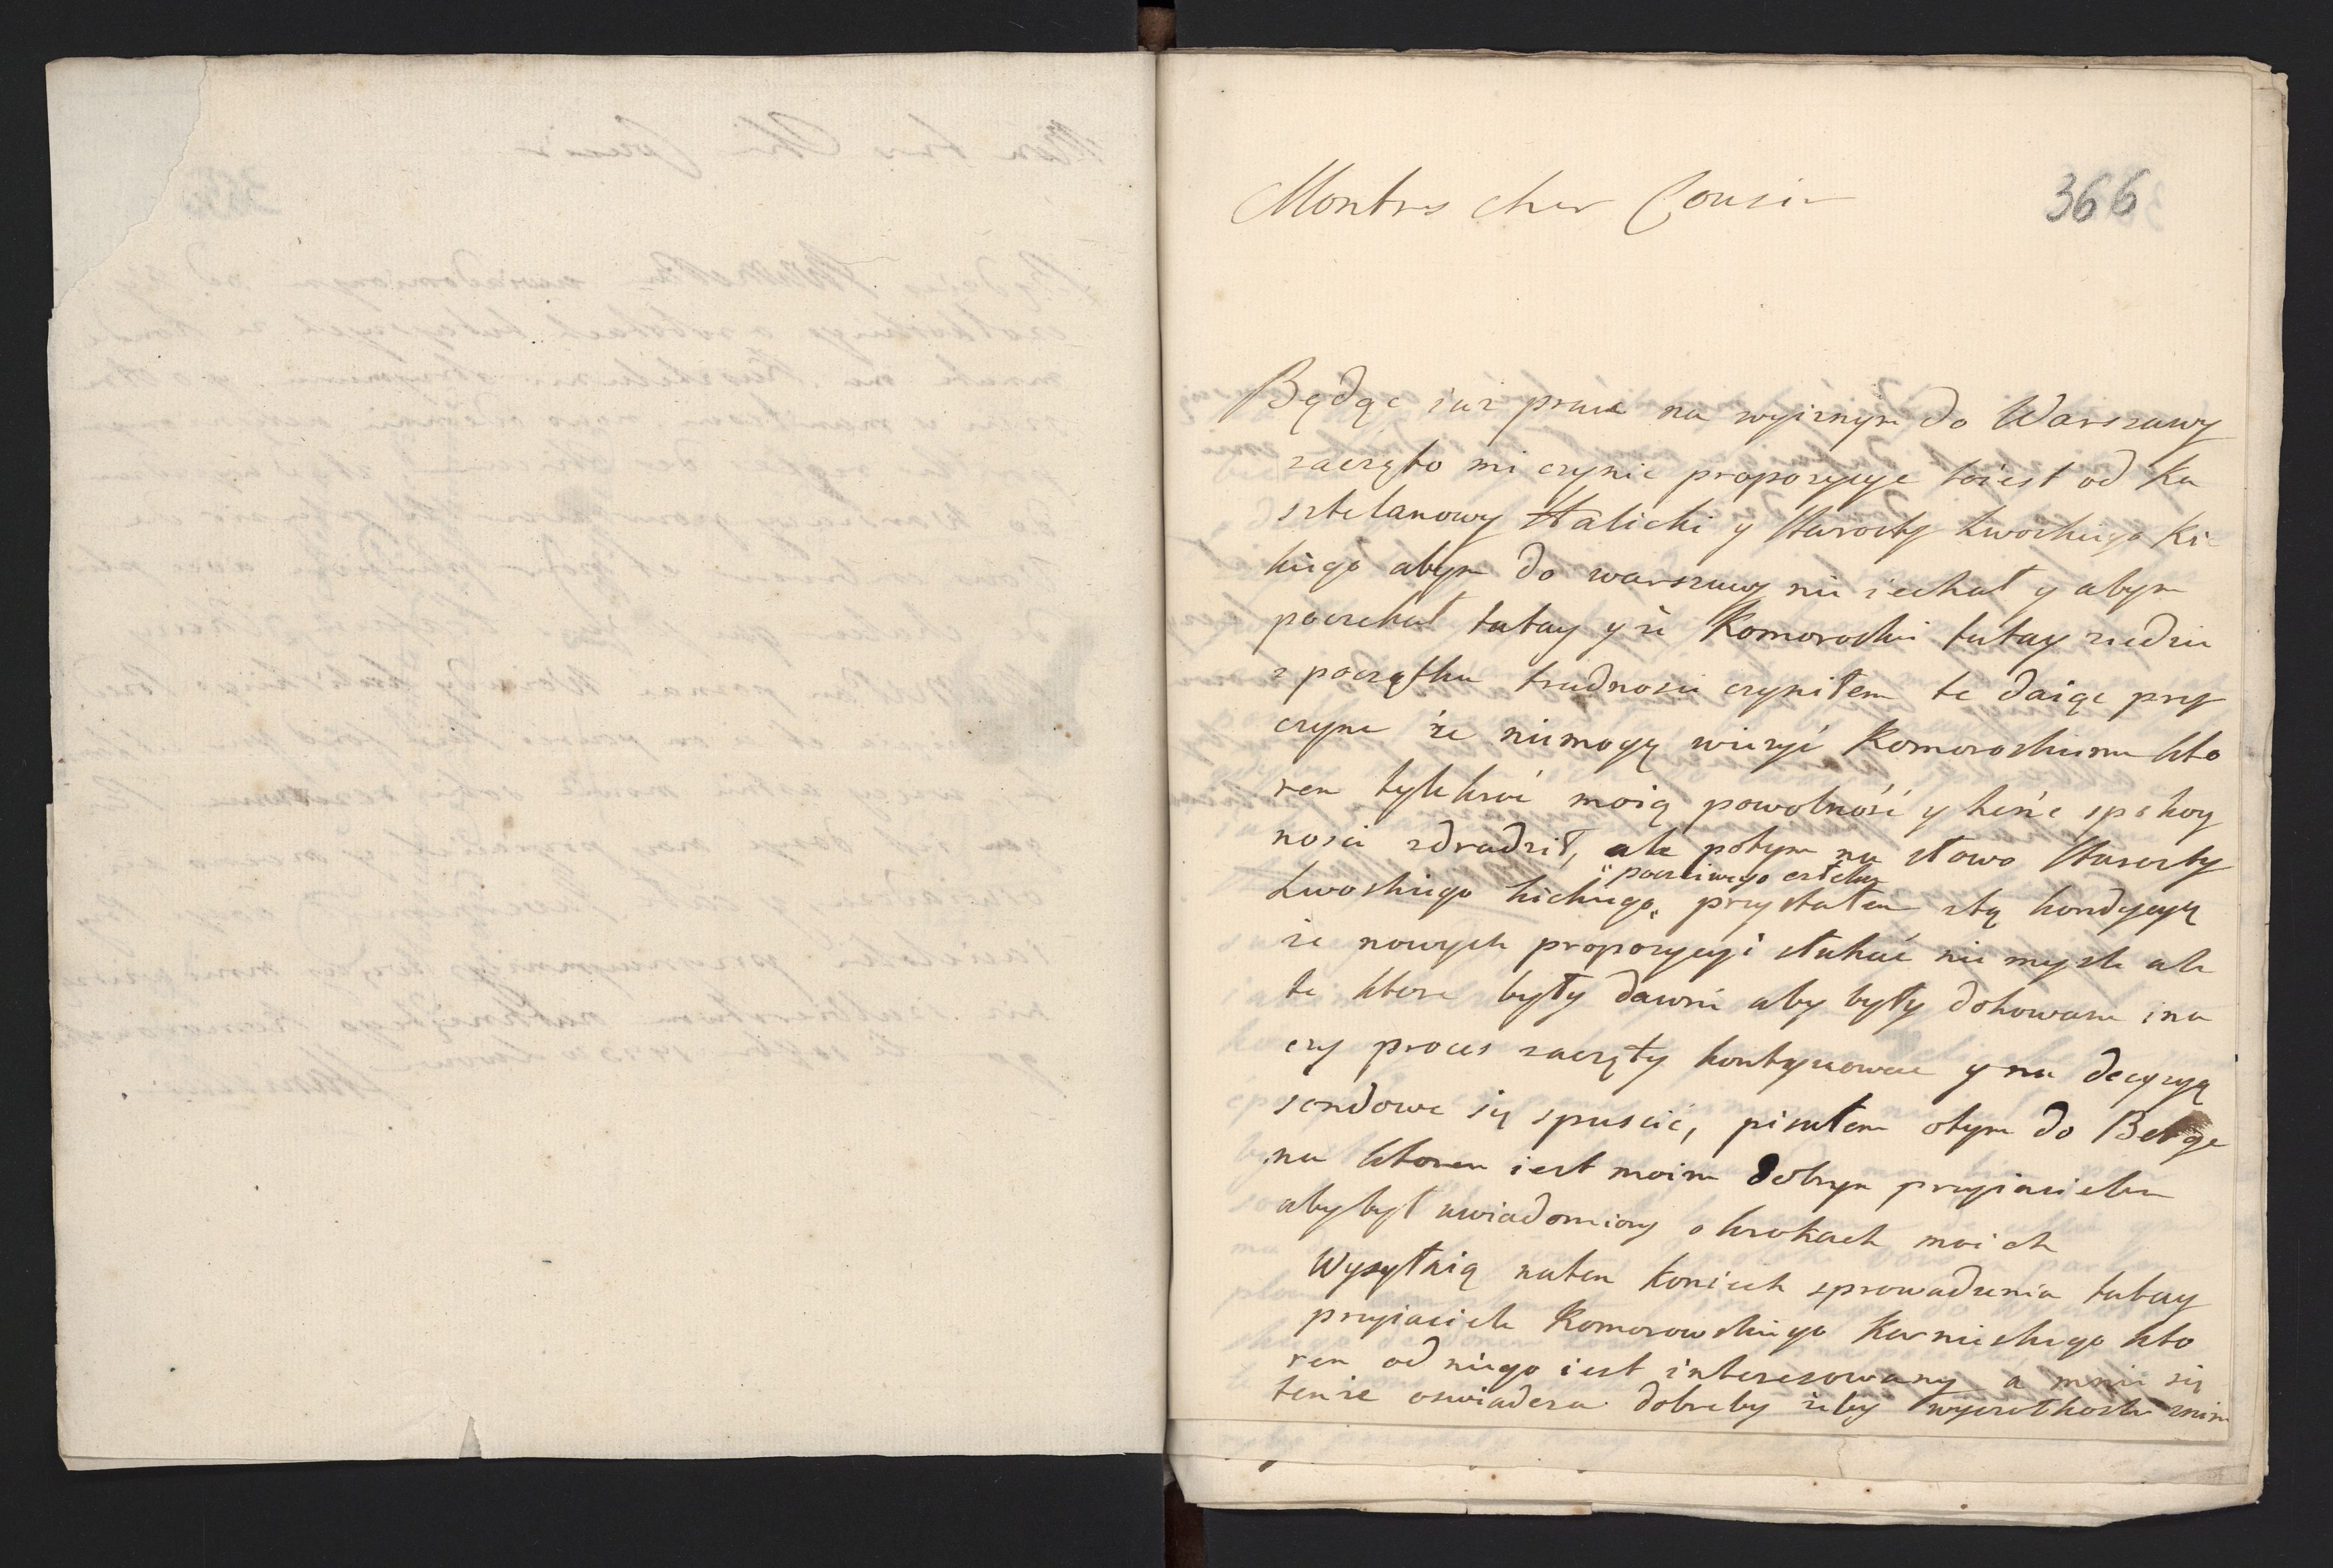 366
Montres cher Cousin
Będąc iuz prawie na wyieznym do Warszawy
zaczęto mi czynic propozycye toiest od Ka
sztelanowy Halicki y Starosty Lwoskiego Ki
kiego abym do warszawy nie iechał y abym
poczekał tutay y że Komoroski tutay ziedzie
z początku trudnosci czyniłem te daiąc przy
czyne że niemogę wierzyć Komoroskiemu kto
ren tylekroć moią powolność y chęńc spokoy
nosci zdradził, ale potym na słowo Starosty
Lwoskiego kickiego " poczciwego człeka przystałem stą kondycyą
że nowych propozycyi słuhać nie mysle ale
te ktore były dawni aby były dokowane ina
czy proces zaczęty kontynowac y na decyzyą
sendowe się spuscić, pisałem otym do Belge
na ktoren iest moim dobrym przyiacielem
abybył uwiadomiony o krokach moich
Wysyłaią naten koniech sprowadzenia tutay
przyiaciele Komorowskiego Karnickiego kto
ren od niego iest interesowany a mnie się
tenże oswiadcza dobreby żeby wyczołkoski znim